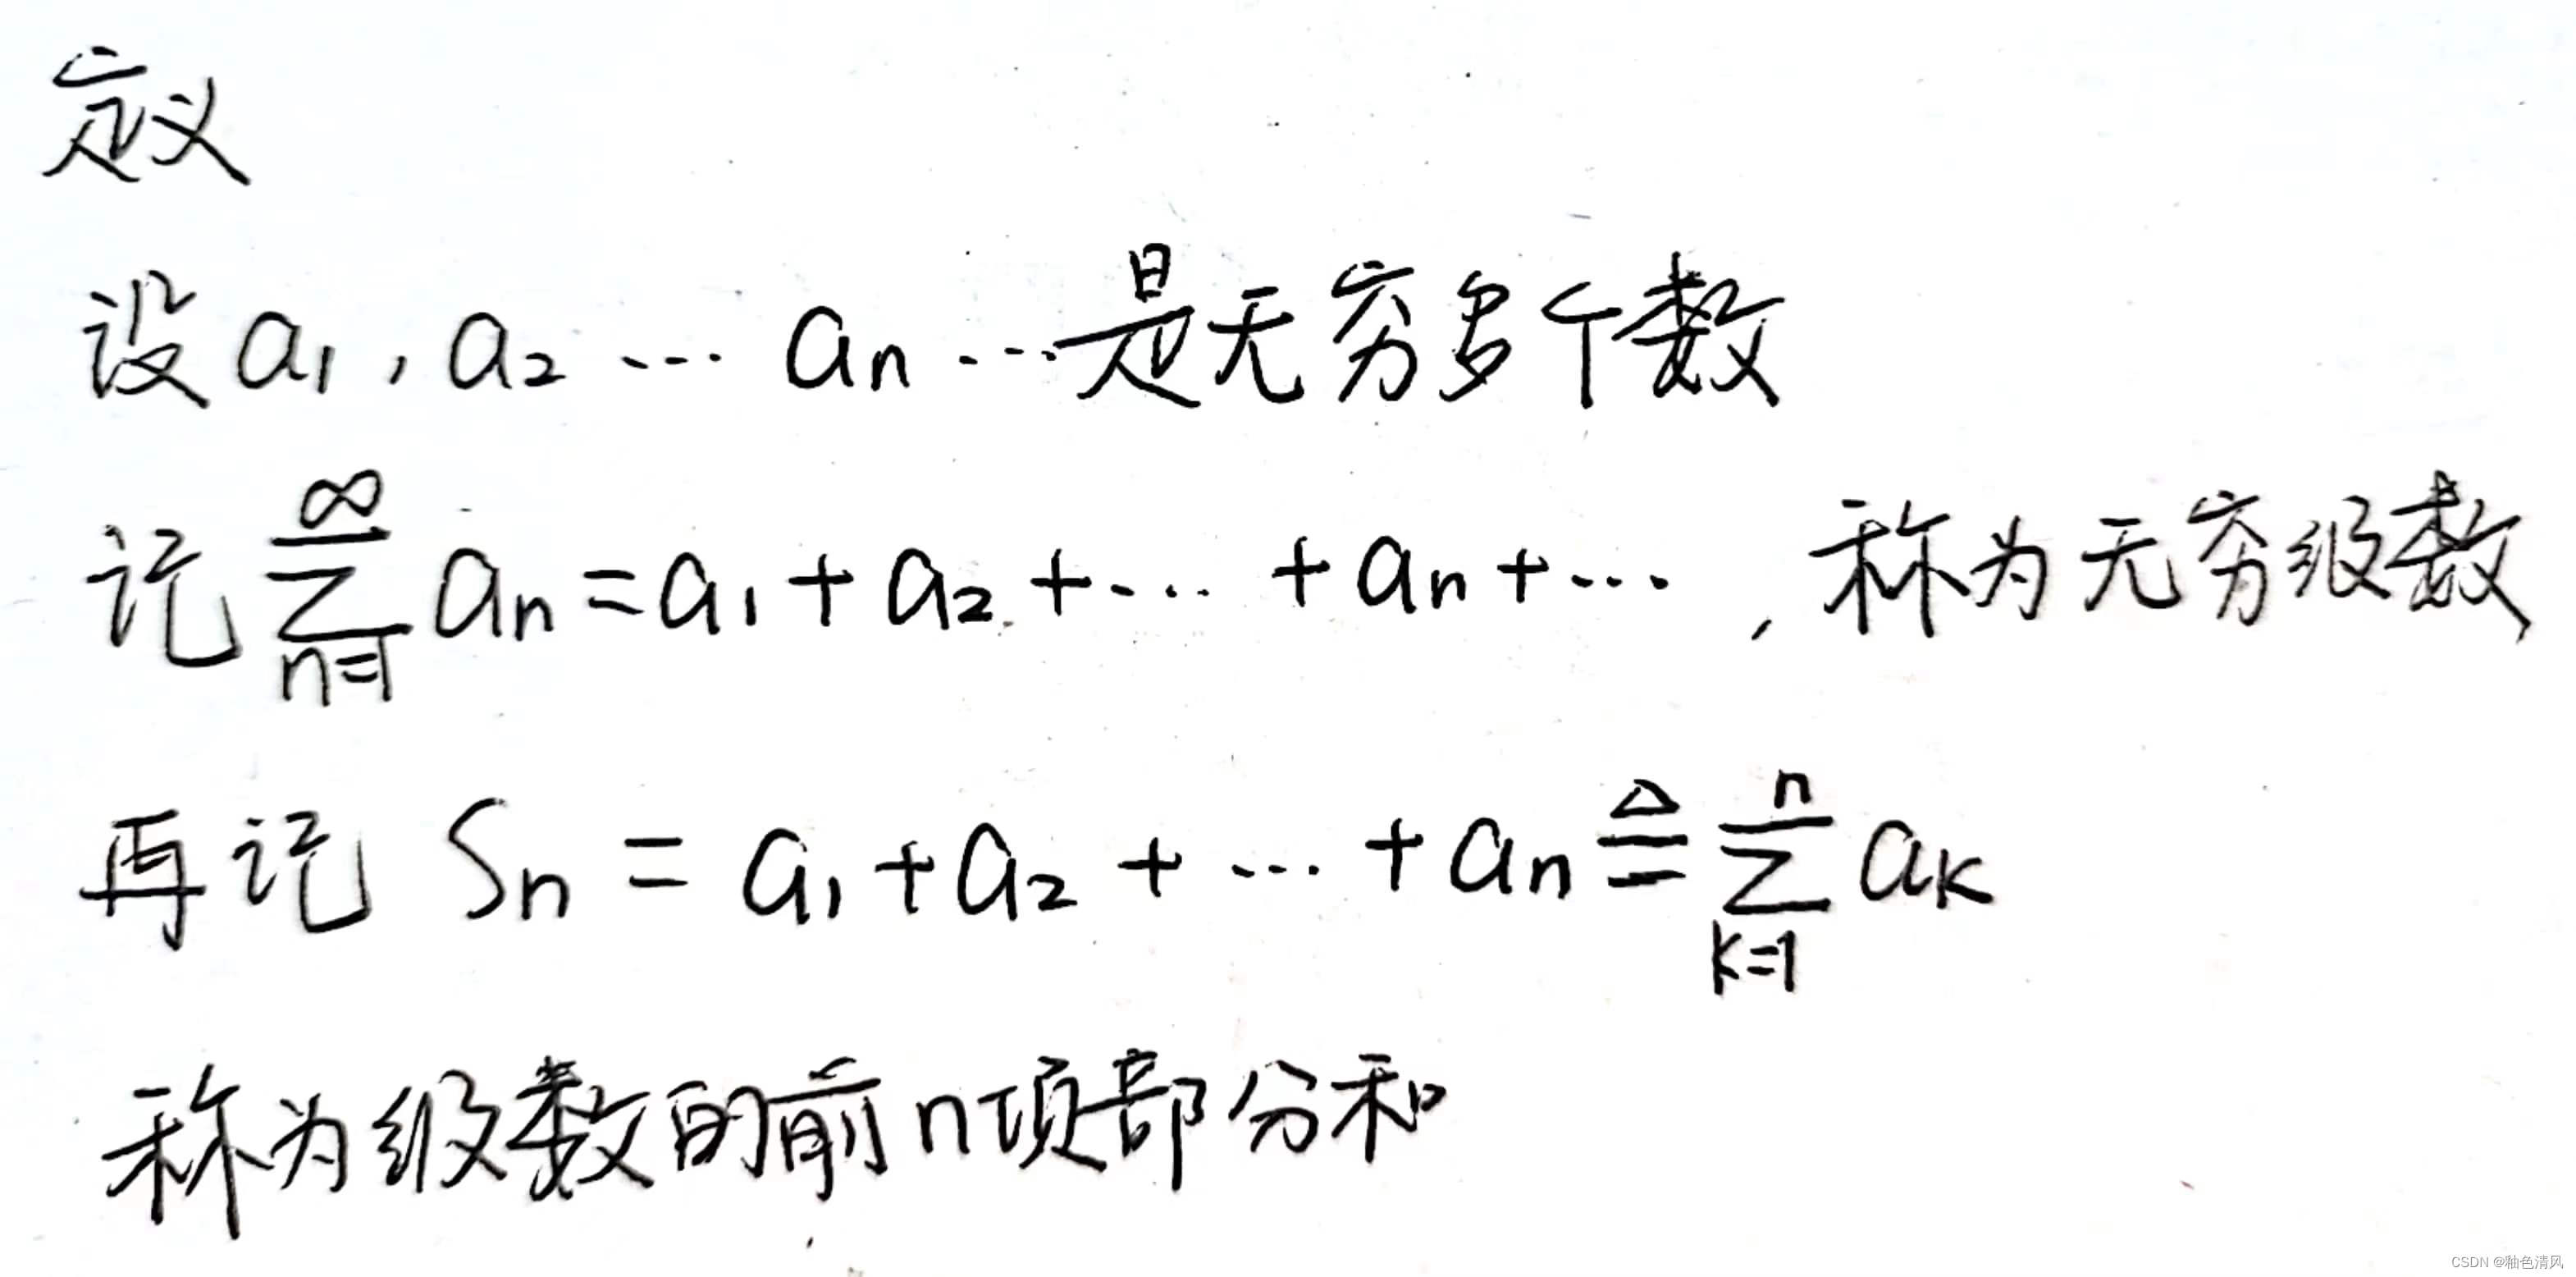 定义
设 a₁, a₂ … aₙ … 是无穷多个数
记 ∑_{n=1}^{∞} aₙ = a₁ + a₂ + … + aₙ + … , 称为无穷级数
再记 Sₙ = a₁ + a₂ + … + aₙ ≜ ∑_{k=1}^{n} aₖ
称为级数的前n项部分和
CSDN @釉色清风